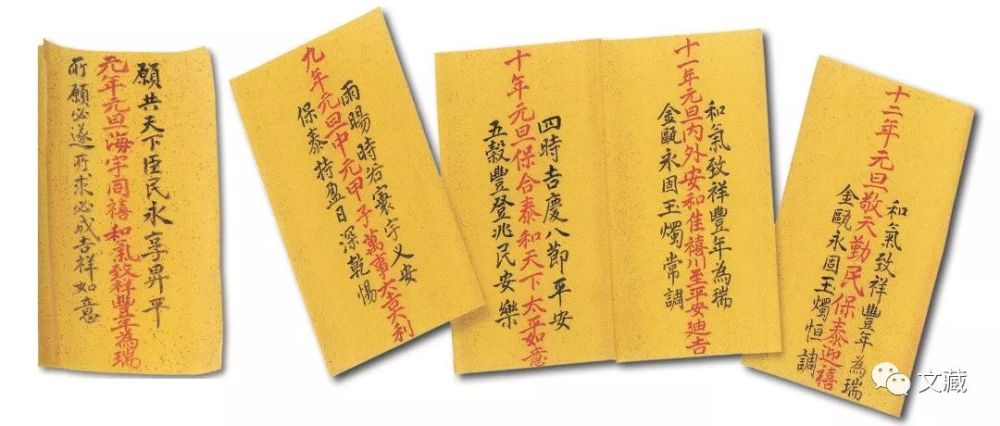 願共天下臣民永享昇平
元年元旦海宇同禧和氣致祥豐年為瑞
所願必遂所求必成吉祥如意
雨暘時若寰宇乂安
九年元旦中元甲子萬事大吉大利
保泰持盈日深乾惕
四時吉慶八節平安
十年元旦保合泰和天下太平如意
五穀豐登兆民安樂
和氣致祥豐年為瑞
十一年元旦內外安和佳禧川至平安迪吉
金甌永固玉燭常調
和氣致祥豐年為瑞
十二年元旦敬天勤民保泰迎禧
金甌永固玉燭恒調
文藏